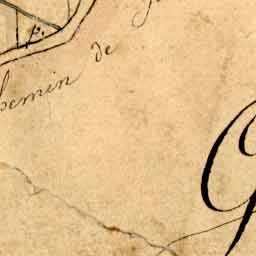 p.
hemin de
G